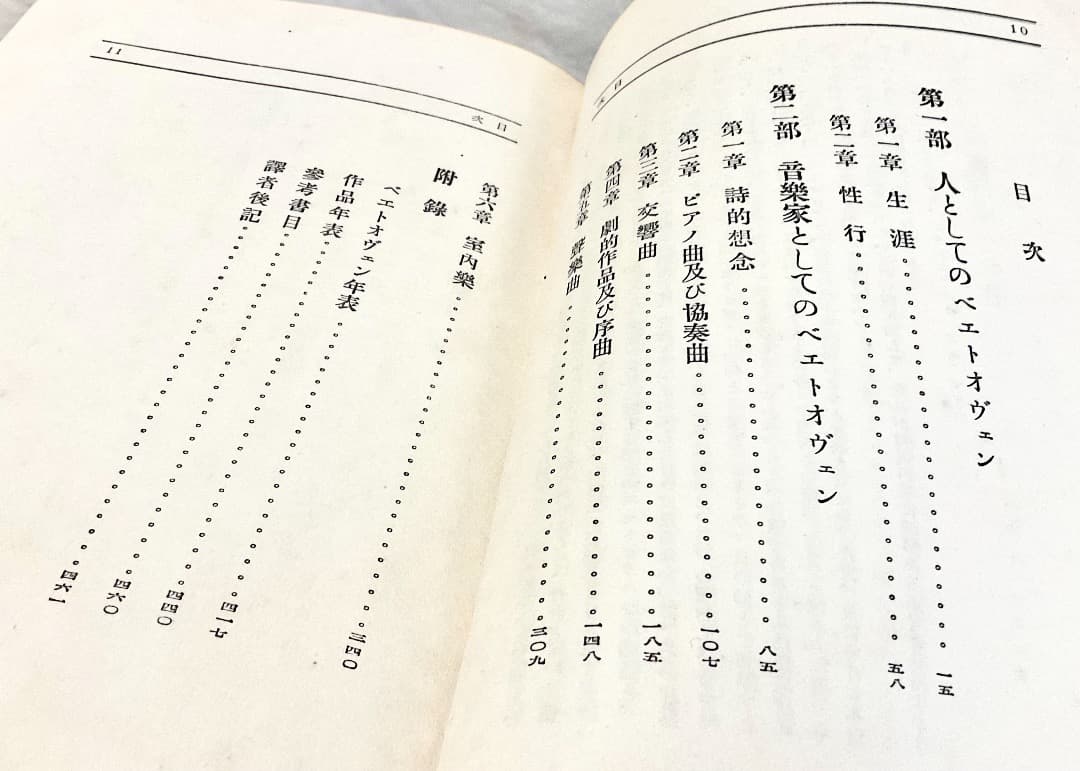 10
目次
目次
第一部 人としてのベエトオヴェン
第一章 生涯 一五
第二章 性行 五八
第二部 音樂家としてのベエトオヴェン
第一章 詩的想念 八五
第二章 ピアノ曲及び協奏曲 一〇七
第三章 交響曲 一八五
第四章 劇的作品及び序曲 一四八
第五章 聲樂曲 三〇九
11
目次
第六章 室内樂 三四〇
附錄
ベエトオヴェン年表 四一七
作品年表 四四〇
參考書目 四六〇
譯者後記 四六一